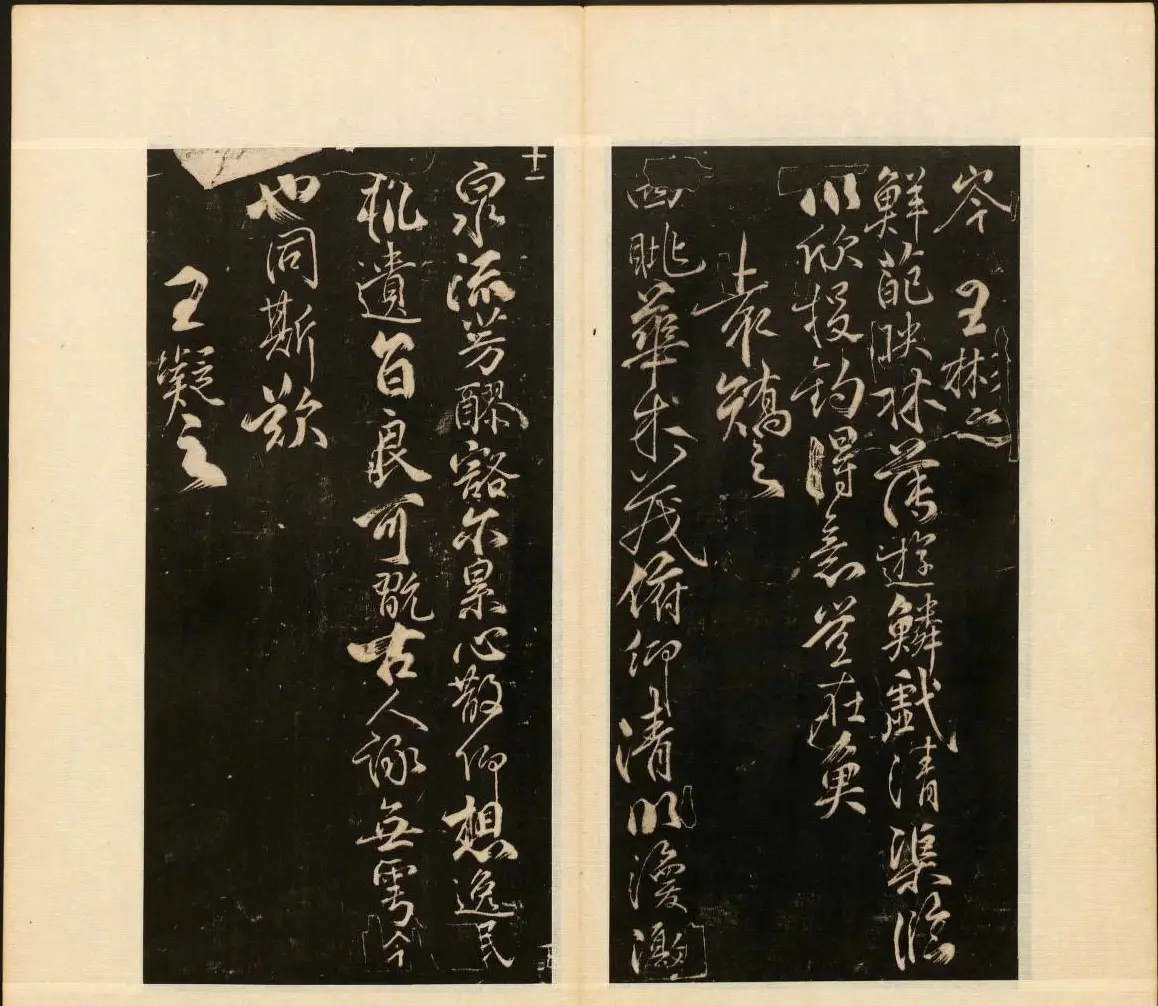 岑　王彬之
鮮葩映林薄遊鱗戲清渠臨
川欣投釣得意豈在魚
袁矯之
四眺華林茂俯仰清川渙激
泉流芳醪豁尔累心散仰想逸民
軌遺音良可翫古人詠無雩今
也同斯歎
王凝之